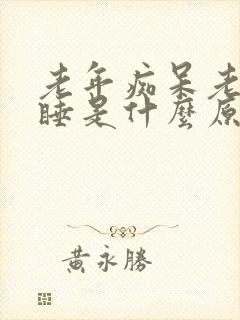 老年痴呆老
睡是什麼原
黃永勝